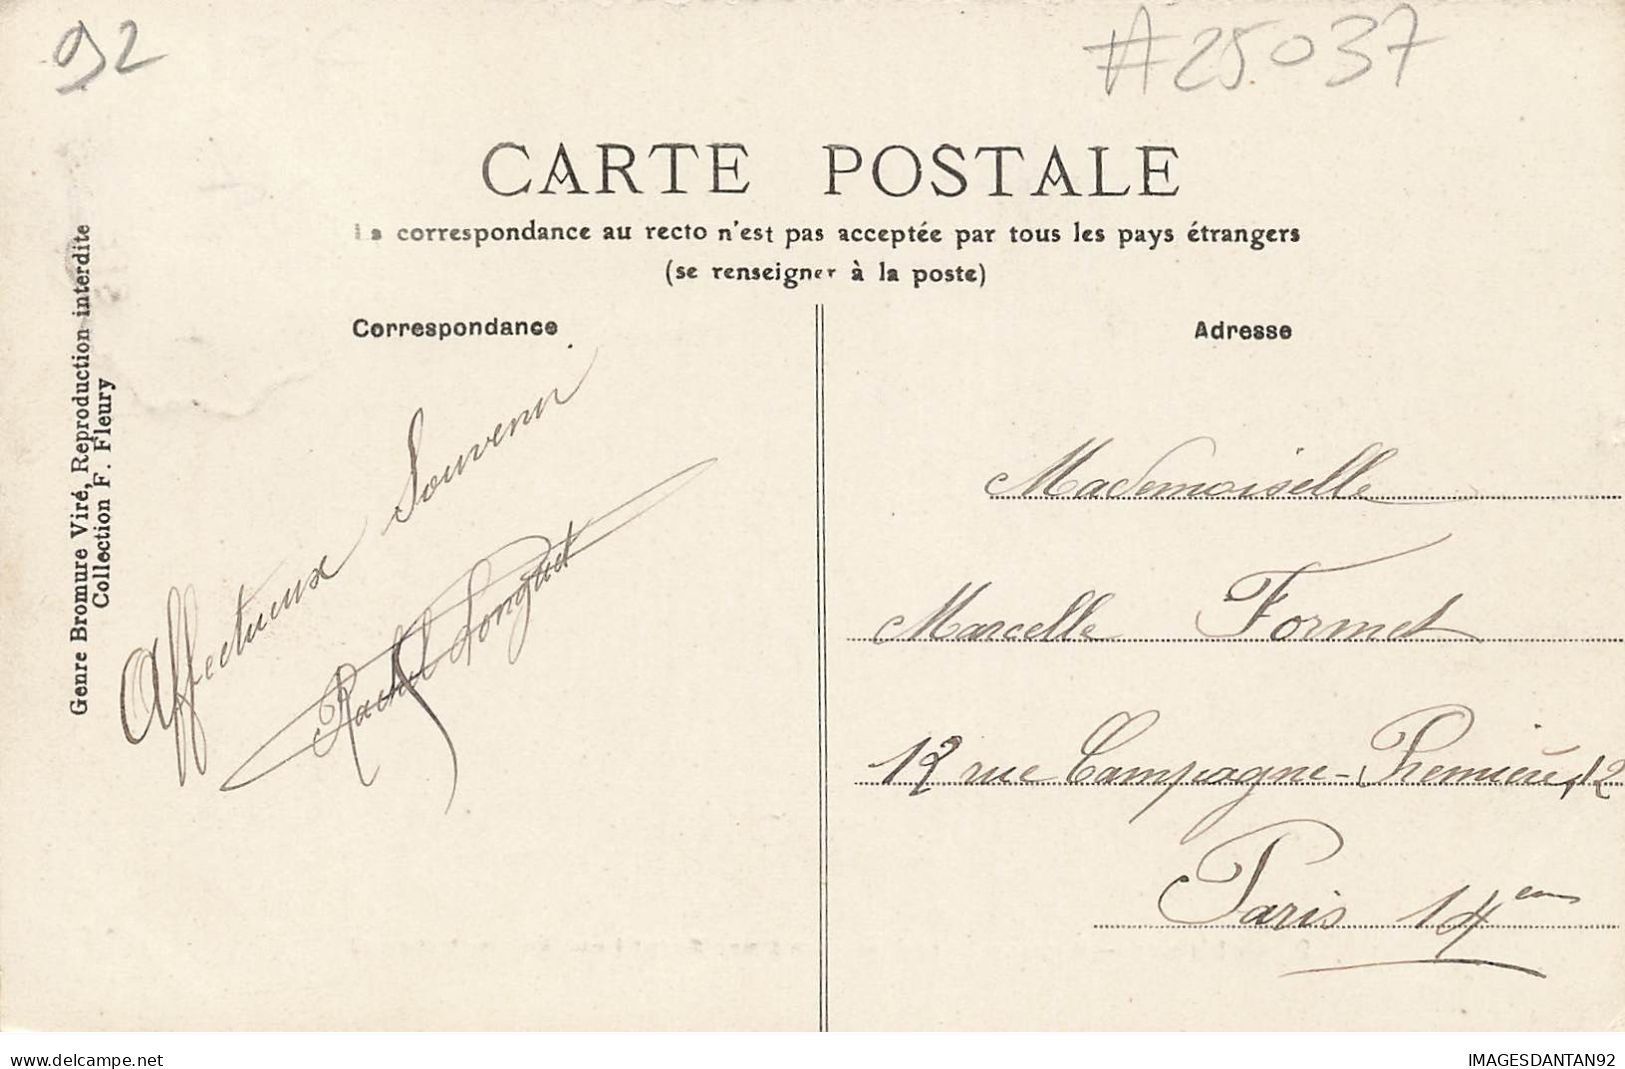 92
#25037
CARTE POSTALE
La correspondance au recto n'est pas acceptée par tous les pays étrangers
(se renseigner à la poste)
Correspondance
Adresse
Genre Bromure Viré, Reproduction interdite
Collection F. Fleury
Affectueux Souvenir
Rachel Longuet
Mademoiselle
Marcelle Formet
12 rue Campagne-Première, 12
Paris 14em
www.delcampe.net
IMAGESDANTAN92